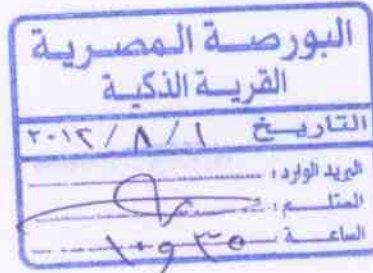 البورصة المصرية
القرية الذكية
التاريخ ١ / ٨ / ٢٠١٢
البريد الوارد :
المستلم :
الساعة ١٠ و ٣٥